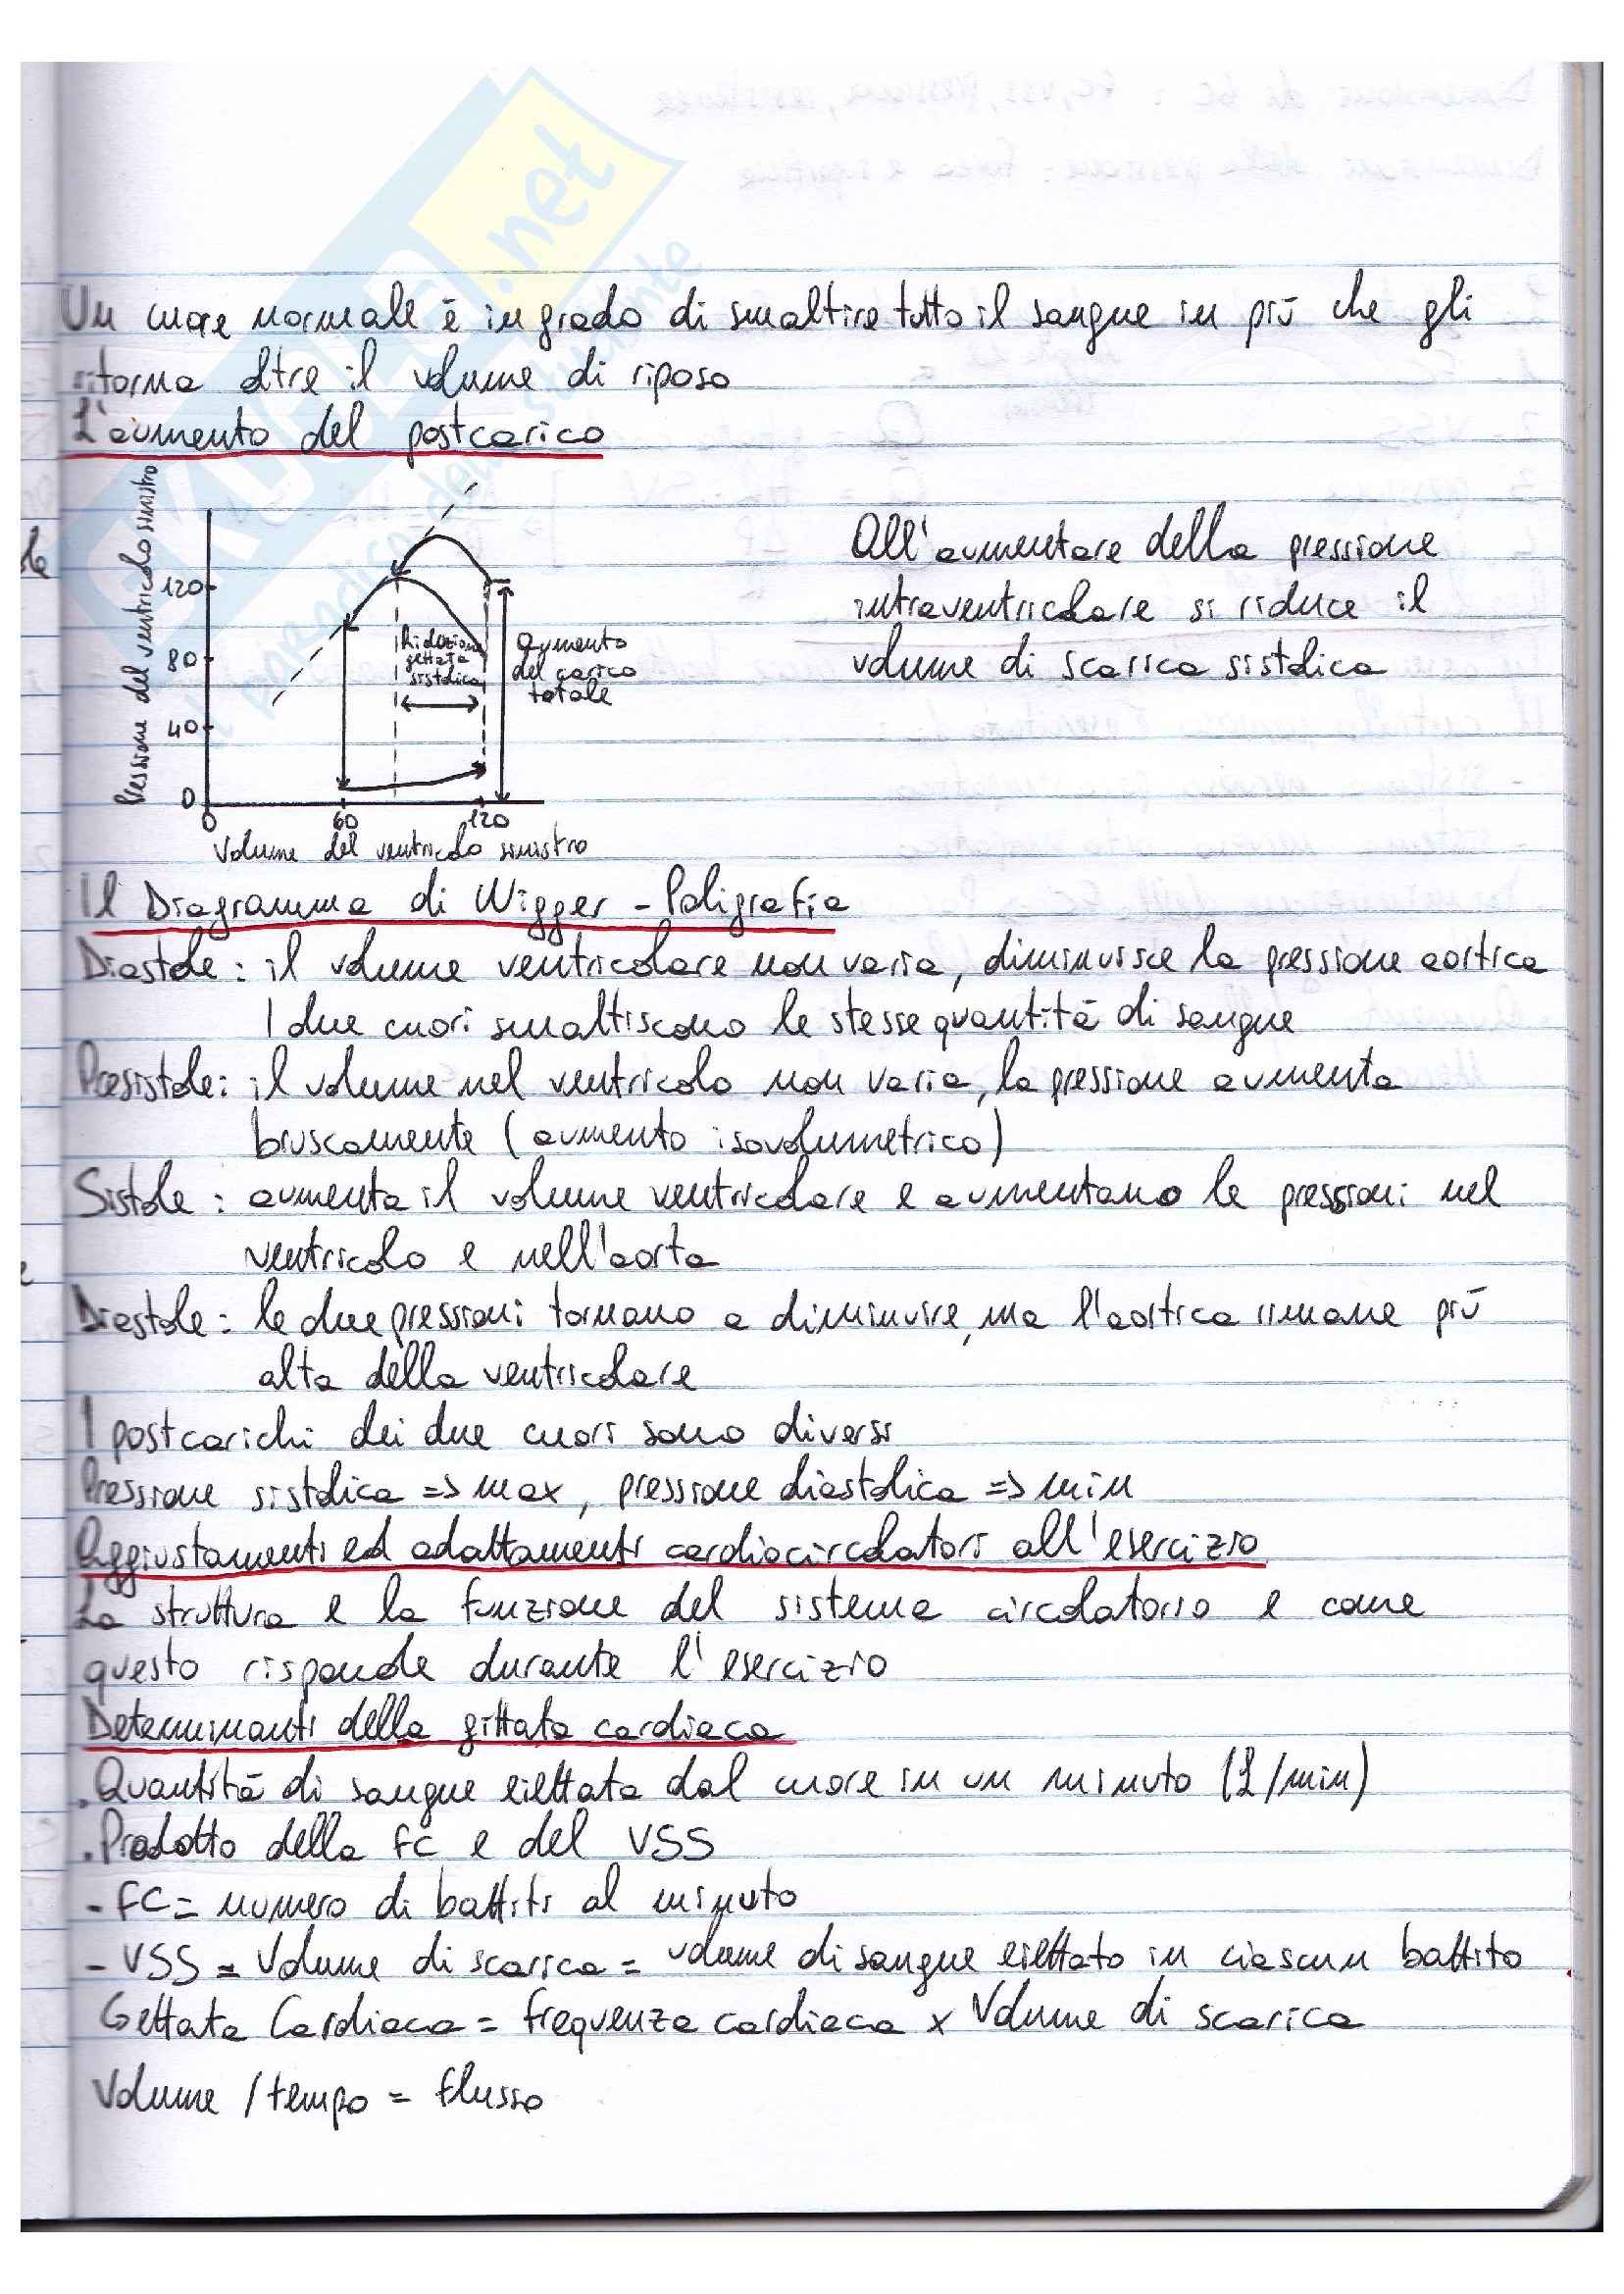 Un cuore normale è in grado di smaltire tutto il sangue in più che gli
ritorna oltre il volume di riposo
L'aumento del postcarico
Pressione del ventricolo sinistro
120
80
40
0
0
60
120
Volume del ventricolo sinistro
Riduzione
gettata
sistolica
aumento
del carico
totale
All'aumentare della pressione
intraventricolare si riduce il
volume di scarica sistolica
Il Diagramma di Wigger - Poligrafia
Diastole: il volume ventricolare non varia, diminuisce la pressione aortica
I due cuori smaltiscono le stesse quantità di sangue
Presistole: il volume nel ventricolo non varia, la pressione aumenta
bruscamente (aumento isovolumetrico)
Sistole: aumenta il volume ventricolare e aumentano le pressioni nel
ventricolo e nell'aorta
Diastole: le due pressioni tornano a diminuire, ma l'aortica rimane più
alta della ventricolare
I postcarichi dei due cuori sono diversi
Pressione sistolica => max, pressione diastolica => min
Aggiustamenti ed adattamenti cardiocircolatori all'esercizio
La struttura e la funzione del sistema circolatorio e come
questo risponde durante l'esercizio
Determinanti della gittata cardiaca
. Quantità di sangue eiettata dal cuore in un minuto (L/min)
. Prodotto della FC e del VSS
- FC = numero di battiti al minuto
- VSS = Volume di scarica = volume di sangue eiettato in ciascun battito
Gettata Cardiaca = frequenza cardiaca x Volume di scarica
Volume / tempo = flusso